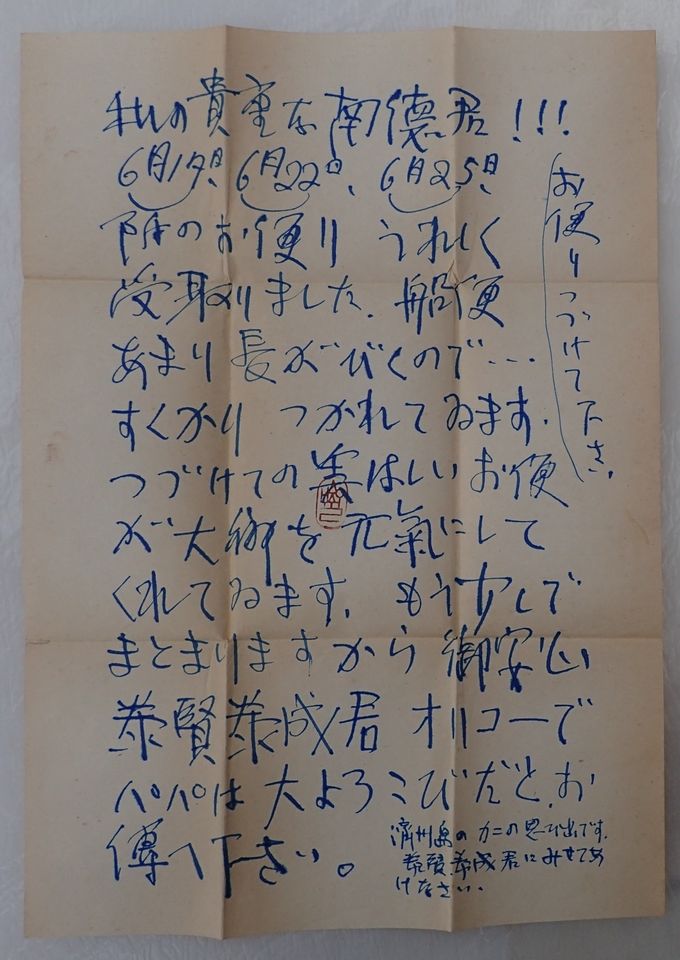 私の貴重な南徳君!!!
6月19日、6月22日、6月25日
附のお便り うれしく
受取りました. 船便
あまり長がびくので...
すくかり つかれてゐます.
つづけての美はしいお便
が大郷を元氣にして
くれてゐます. もう少しで
まとまりますから 御安心
泰賢泰成君 オリコーで
パパは大よろこびだと、お
傳へ下さい。
お便りつづけて下さい
濟州島のカニの思ひ出です.
泰賢、泰成君にみせてあ
げなさい.